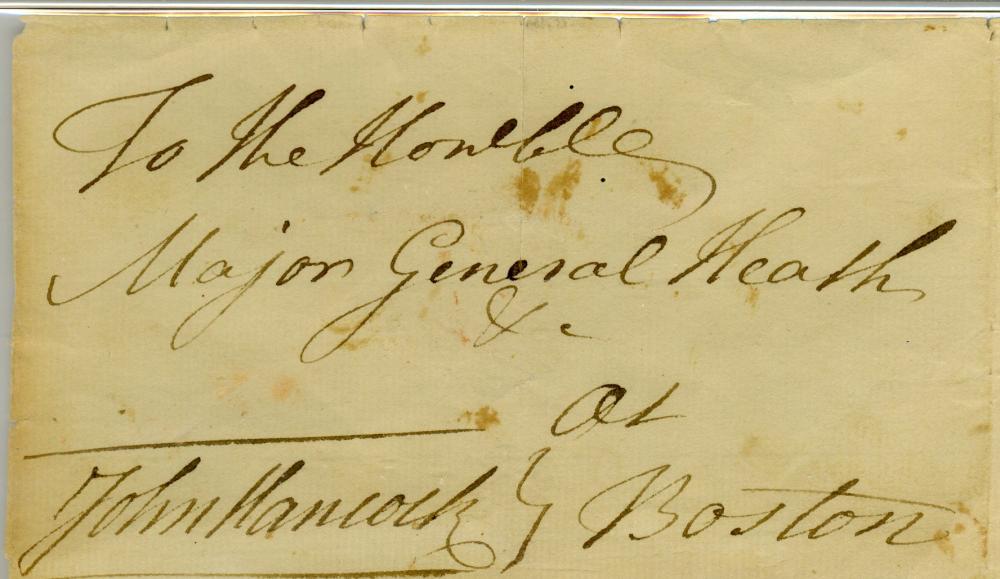 To the Honble
Major General Heath
&c
At
John Hancock } Boston